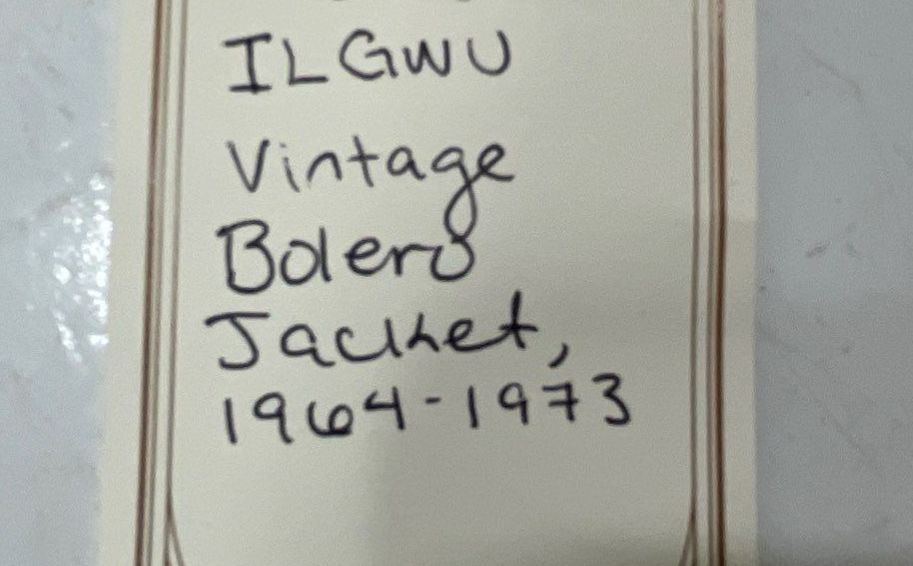 ILGWU
Vintage
Bolero
Jacket,
1964-1973